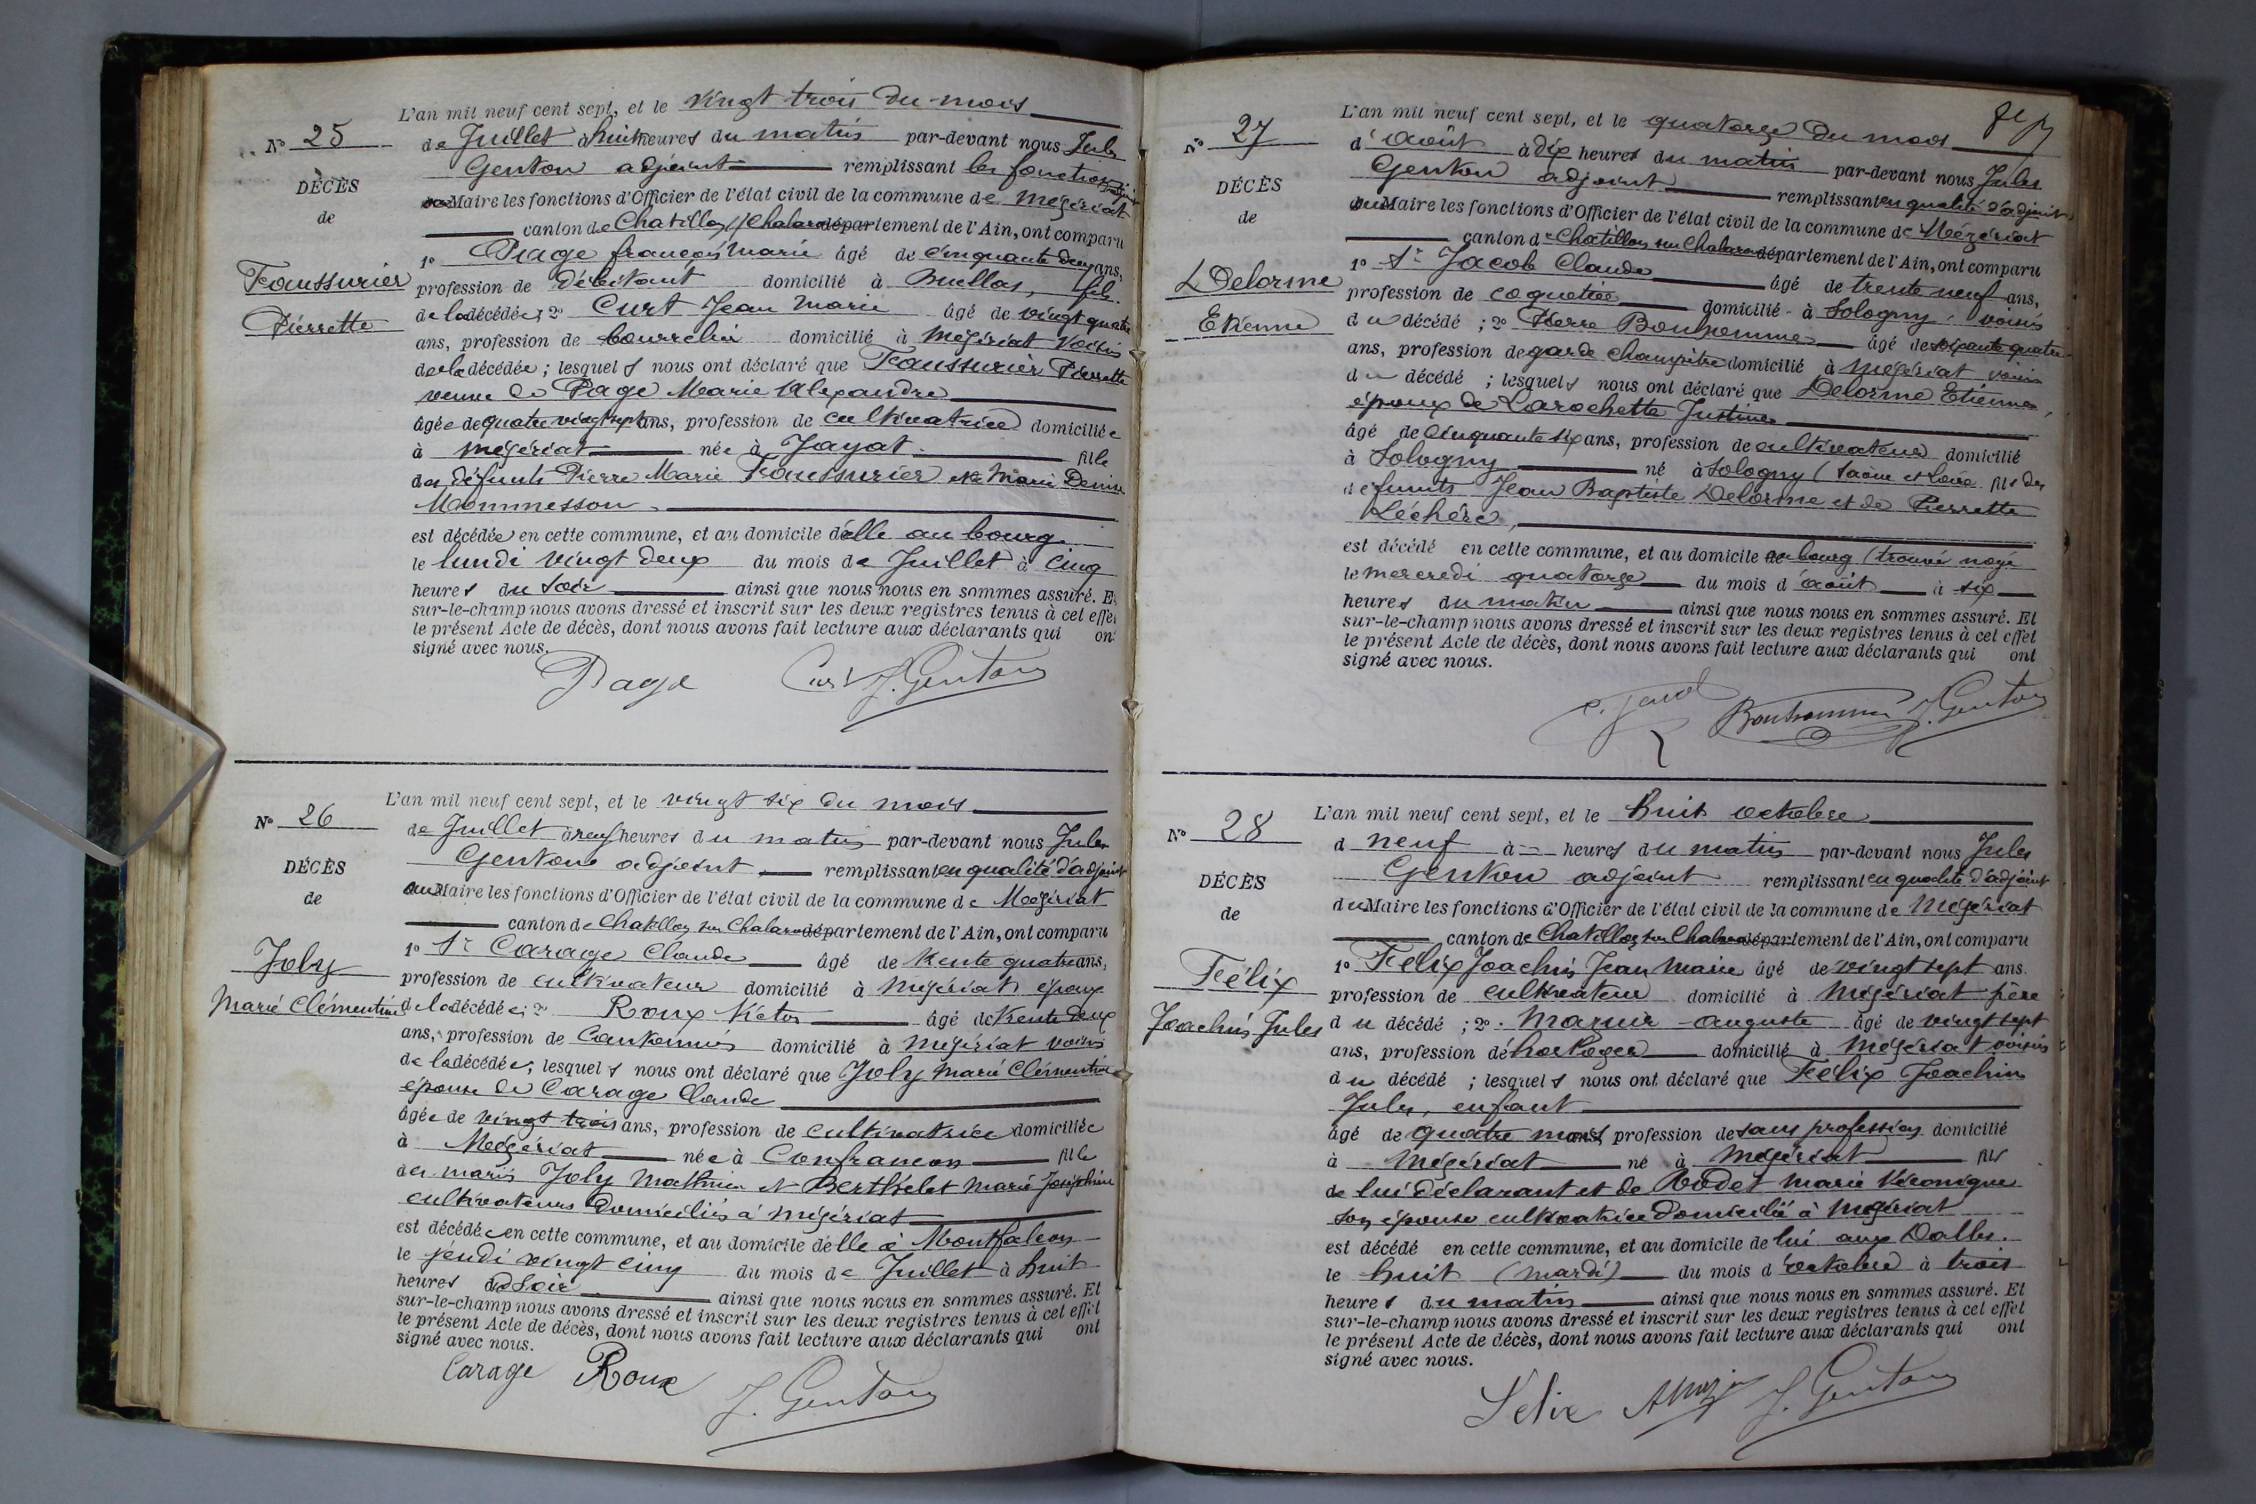 L'an mil neuf cent sept, et le vingt trois du mois
N° 25
de Juillet à huit heures du matin par-devant nous Jules
Genton adjoint remplissant les fonctions
DÉCÈS
Maire les fonctions d'Officier de l'état civil de la commune de Mézériat
de
canton de Chatillon s/ Chalaronne département de l'Ain, ont comparu
1° Page françois Marie âgé de cinquante deux ans,
Faussurier
profession de débitant domicilié à Buellas, fils
Pierrette
de la décédée; 2° Curt Jean Marie âgé de vingt quatre
ans, profession de bourrelier domicilié à Mézériat voisin
de la décédée; lesquels nous ont déclaré que Faussurier Pierrette
veuve de Page Marie Alexandre
âgée de quatre vingt sept ans, profession de cultivatrice domiciliée
à Mézériat née à Jayat fille
des défunts Pierre Marie Faussurier et Marie Denise
Mommesson
est décédée en cette commune, et au domicile d'elle au bourg
le lundi vingt deux du mois de Juillet à cinq
heures du soir ainsi que nous nous en sommes assuré. Et
sur-le-champ nous avons dressé et inscrit sur les deux registres tenus à cet effet
le présent Acte de décès, dont nous avons fait lecture aux déclarants qui ont
signé avec nous.
Page Curt J. Genton
L'an mil neuf cent sept, et le vingt six du mois
N° 26
de Juillet à neuf heures du matin par-devant nous Jules
Genton adjoint remplissant en qualité d'adjoint
DÉCÈS
au Maire les fonctions d'Officier de l'état civil de la commune de Mézériat
de
canton de Chatillon sur Chalaronne département de l'Ain, ont comparu
1° Sr Carage Claude âgé de trente quatre ans,
Joly
profession de cultivateur domicilié à Mézériat époux
Marie Clémentine
de la décédée; 2° Roux Victor âgé de trente deux
ans, profession de Cantonnier domicilié à Mézériat voisin
de la décédée; lesquels nous ont déclaré que Joly Marie Clémentine
épouse de Carage Claude
âgée de vingt trois ans, profession de cultivatrice domiciliée
à Mézériat née à Confrançon fille
des mariés Joly Mathieu et Berthelet Marie Joséphine
cultivateurs domiciliés à Mézériat
est décédée en cette commune, et au domicile d'elle à Montfalcon
le jeudi vingt cinq du mois de Juillet à huit
heures du soir ainsi que nous nous en sommes assuré. Et
sur-le-champ nous avons dressé et inscrit sur les deux registres tenus à cet effet
le présent Acte de décès, dont nous avons fait lecture aux déclarants qui ont
signé avec nous.
Carage Roux J. Genton
L'an mil neuf cent sept, et le quatorze du mois
N° 27
d'août à dix heures du matin par-devant nous Jules
Genton adjoint remplissant en qualité d'adjoint
DÉCÈS
au Maire les fonctions d'Officier de l'état civil de la commune de Mézériat
de
canton de Chatillon sur Chalaronne département de l'Ain, ont comparu
1° Sr Jacob Claude âgé de trente neuf ans,
Delorme
profession de coquetier domicilié à Sologny, voisin
Etienne
du décédé; 2° Pierre Bonhomme âgé de soixante quatre
ans, profession de garde champêtre domicilié à Mézériat voisin
du décédé; lesquels nous ont déclaré que Delorme Etienne,
époux de Larochette Justine
âgé de cinquante six ans, profession de cultivateur domicilié
à Sologny né à Sologny (Saône et Loire fils des
défunts Jean Baptiste Delorme et de Pierrette
Léchère,
est décédé en cette commune, et au domicile au bourg (trouvé noyé
le mercredi quatorze du mois d'août à six
heures du matin ainsi que nous nous en sommes assuré. Et
sur-le-champ nous avons dressé et inscrit sur les deux registres tenus à cet effet
le présent Acte de décès, dont nous avons fait lecture aux déclarants qui ont
signé avec nous.
C. Jacob Bonhomme J. Genton
L'an mil neuf cent sept, et le huit octobre
N° 28
à neuf à = heures du matin par-devant nous Jules
Genton adjoint remplissant en qualité d'adjoint
DÉCÈS
du Maire les fonctions d'Officier de l'état civil de la commune de Mézériat
de
canton de Chatillon sur Chalaronne département de l'Ain, ont comparu
1° Félix Joachin Jean Marie âgé de vingt sept ans.
Félix
profession de cultivateur domicilié à Mézériat père
Joachin Jules
du décédé; 2° Mazuir auguste âgé de vingt sept
ans, profession d'horloger domicilié à Mézériat voisin
du décédé; lesquels nous ont déclaré que Félix Joachin
Jules, enfant
âgé de quatre mois, profession de sans profession domicilié
à Mézériat né à Mézériat fils
de lui déclarant et de Rodet Marie Véronique
son épouse cultivatrice domiciliée à Mézériat
est décédé en cette commune, et au domicile de lui aux Dalles.
le huit (mardi) du mois d'octobre à trois
heures du matin ainsi que nous nous en sommes assuré. Et
sur-le-champ nous avons dressé et inscrit sur les deux registres tenus à cet effet
le présent Acte de décès, dont nous avons fait lecture aux déclarants qui ont
signé avec nous.
Félix J. Genton